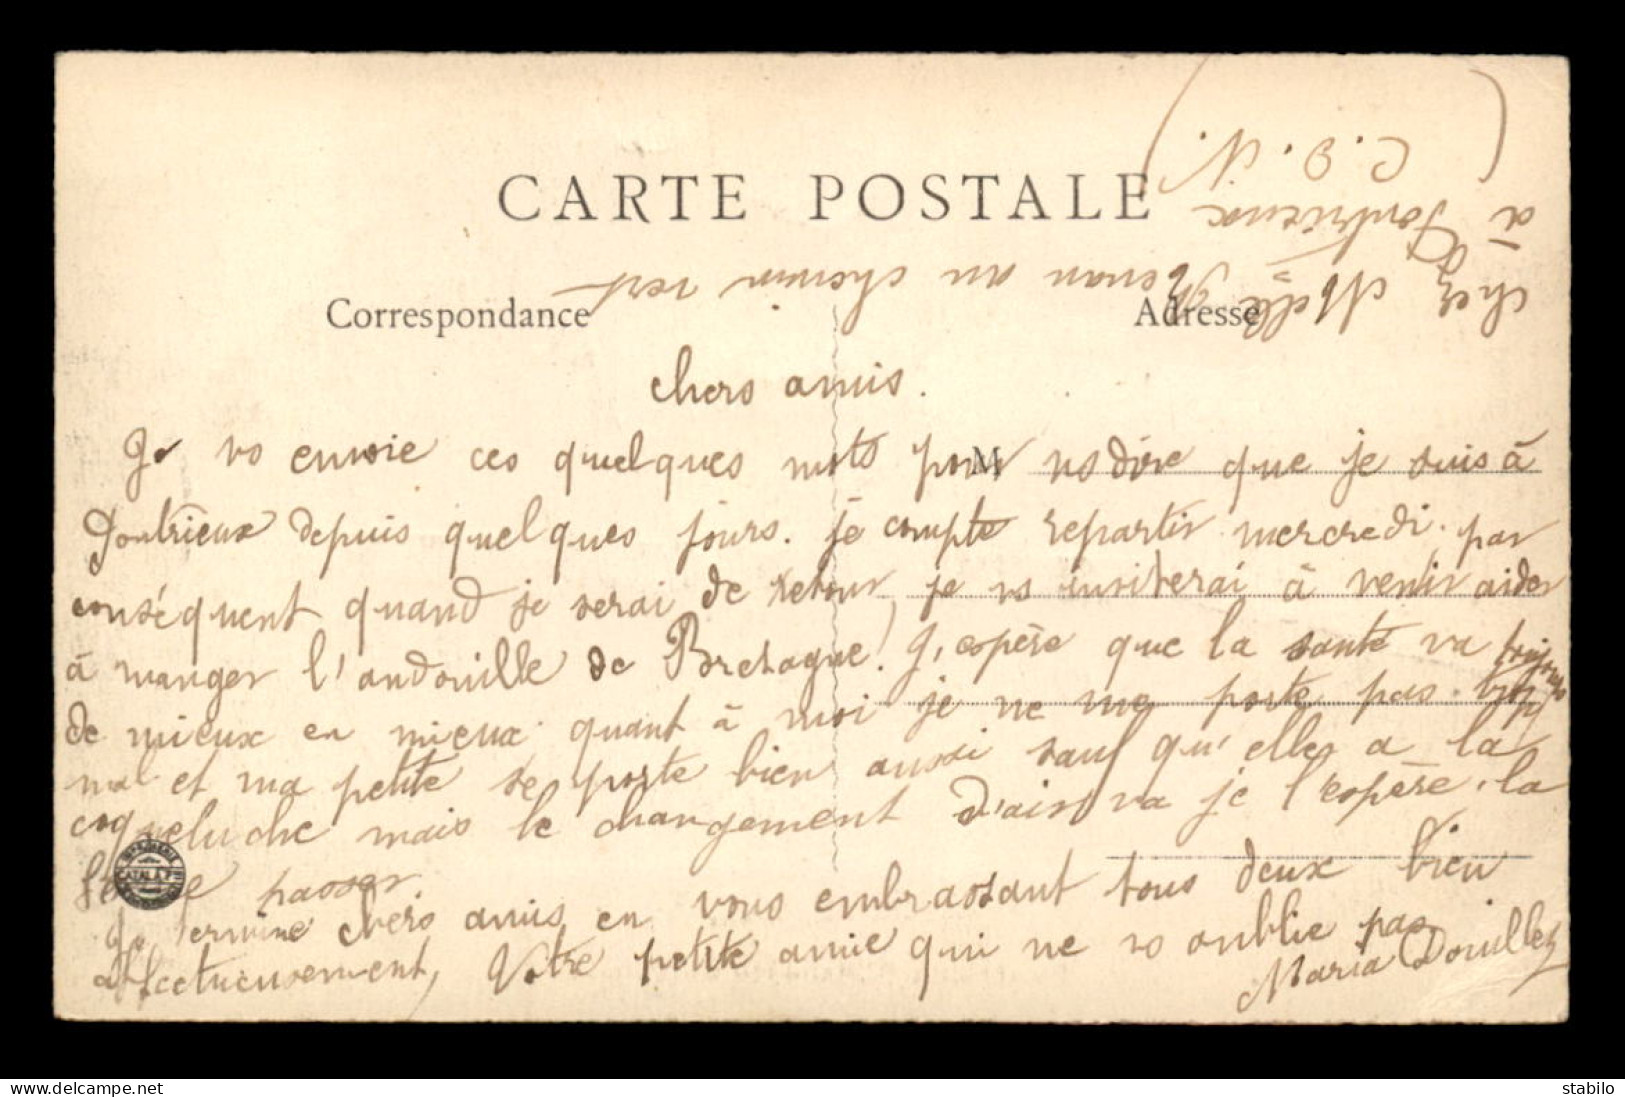 CARTE POSTALE
Correspondance
Adresse
M
chez Melle Renan au chemin vert
à Pontrieux
(C. D. N.)
chers amis.
Je vs envoie ces quelques mots pour vs dire que je suis à
Pontrieux depuis quelques jours. je compte repartir mercredi. par
conséquent quand je serai de retour, je vs inviterai à venir aider
à manger l'andouille de Bretagne! J'espère que la santé va toujours
de mieux en mieux. quant à moi je ne me porte pas trop
mal et ma petite se porte bien aussi sauf qu'elle a la
coqueluche mais le changement d'air va je l'espère. la
passer.
Je termine chers amis en vous embrassant tous deux bien
affectueusement, Votre petite amie qui ne vs oublie pas
Maria Douillez
CATALA
delcampe.net
stabilo